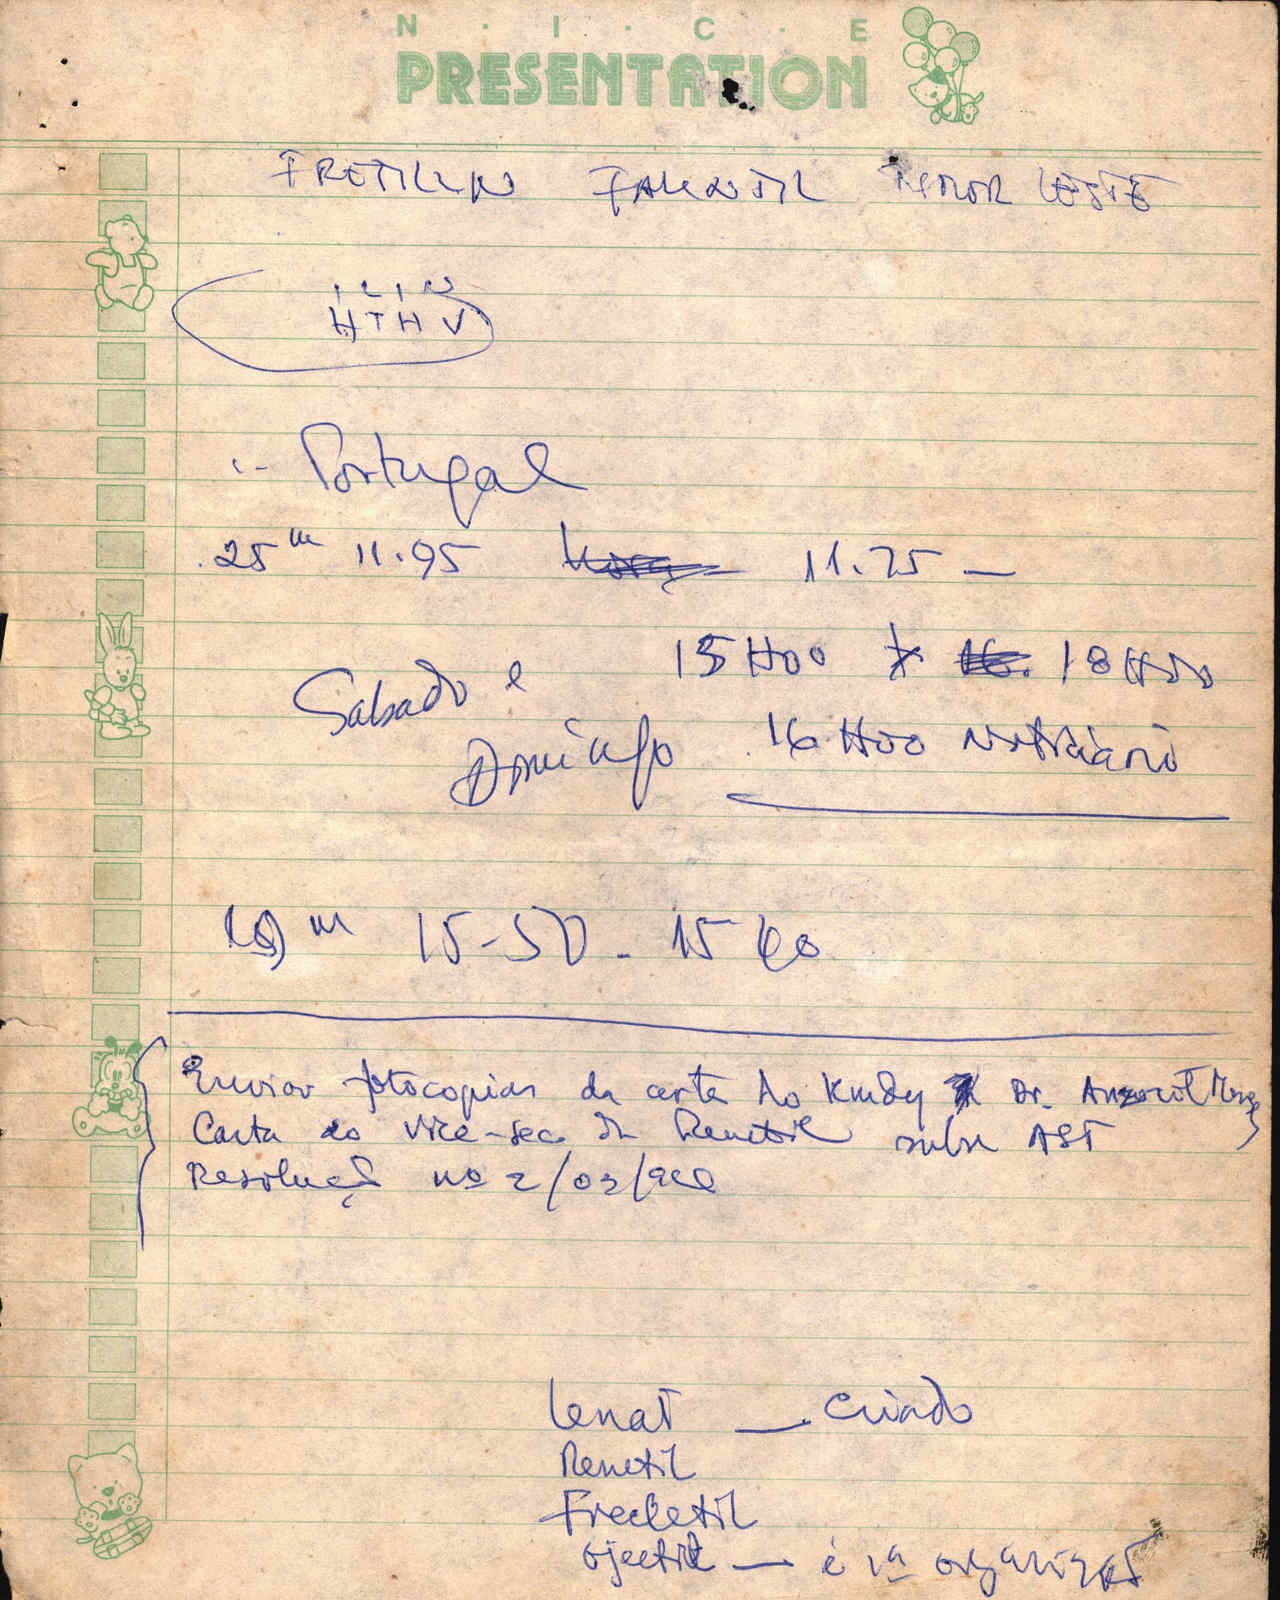 N · I · C · E
PRESENTATION
FRETILIN FALINTIL TIMOR LESTE
I L I N
H T H V
Portugal
25 m 11.95 11.75 —
15H00 18H00
Sabado e
Domingo 16H00 Noticiário
m 15-50 - 15 60
Enviar fotocopias da carta ao Kmdy Dr.
Carta do Vice-sec da Renetil sobre AST
Resolução nº 2/03/
Lenat — Criado
Renetil
Frecletil
Ojectil — é 1ª organização